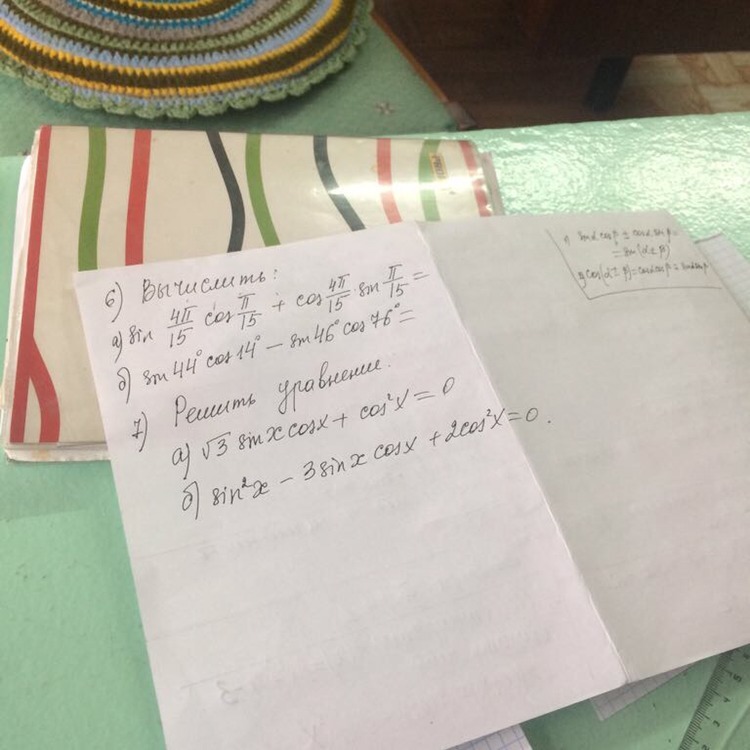 6) Вычислить:
а) sin 4π/15 cos π/15 + cos 4π/15 · sin π/15 =
б) sin 44° cos 14° – sin 46° cos 76° =
7) Решить уравнение.
а) √3 sin x cos x + cos² x = 0
б) sin² x – 3 sin x cos x + 2 cos² x = 0.
1) sin α cos β ± cos α sin β =
= sin (α ± β)
2) cos (α ± β) = cos α cos β ∓ sin α sin β